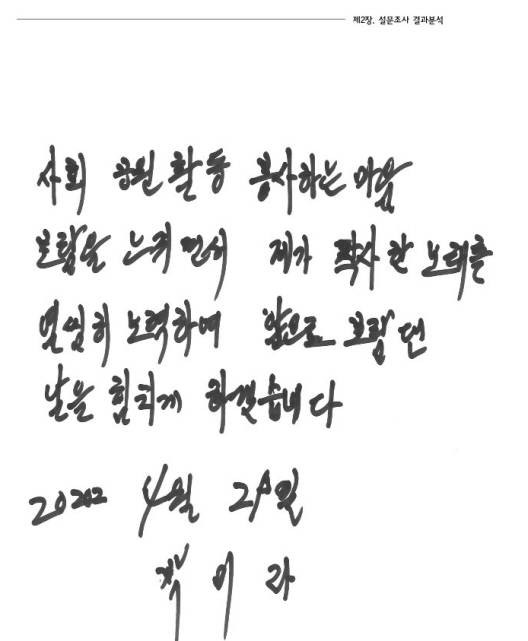 제2장. 설문조사 결과분석
사회 공원 활동 봉사하는 마음
보람을 느귀면서 제가 작사한 노래를
열심히 노력하며 앞으로 보람댄
날을 힘치게 하겠습니다
2022 4월 29일
이라